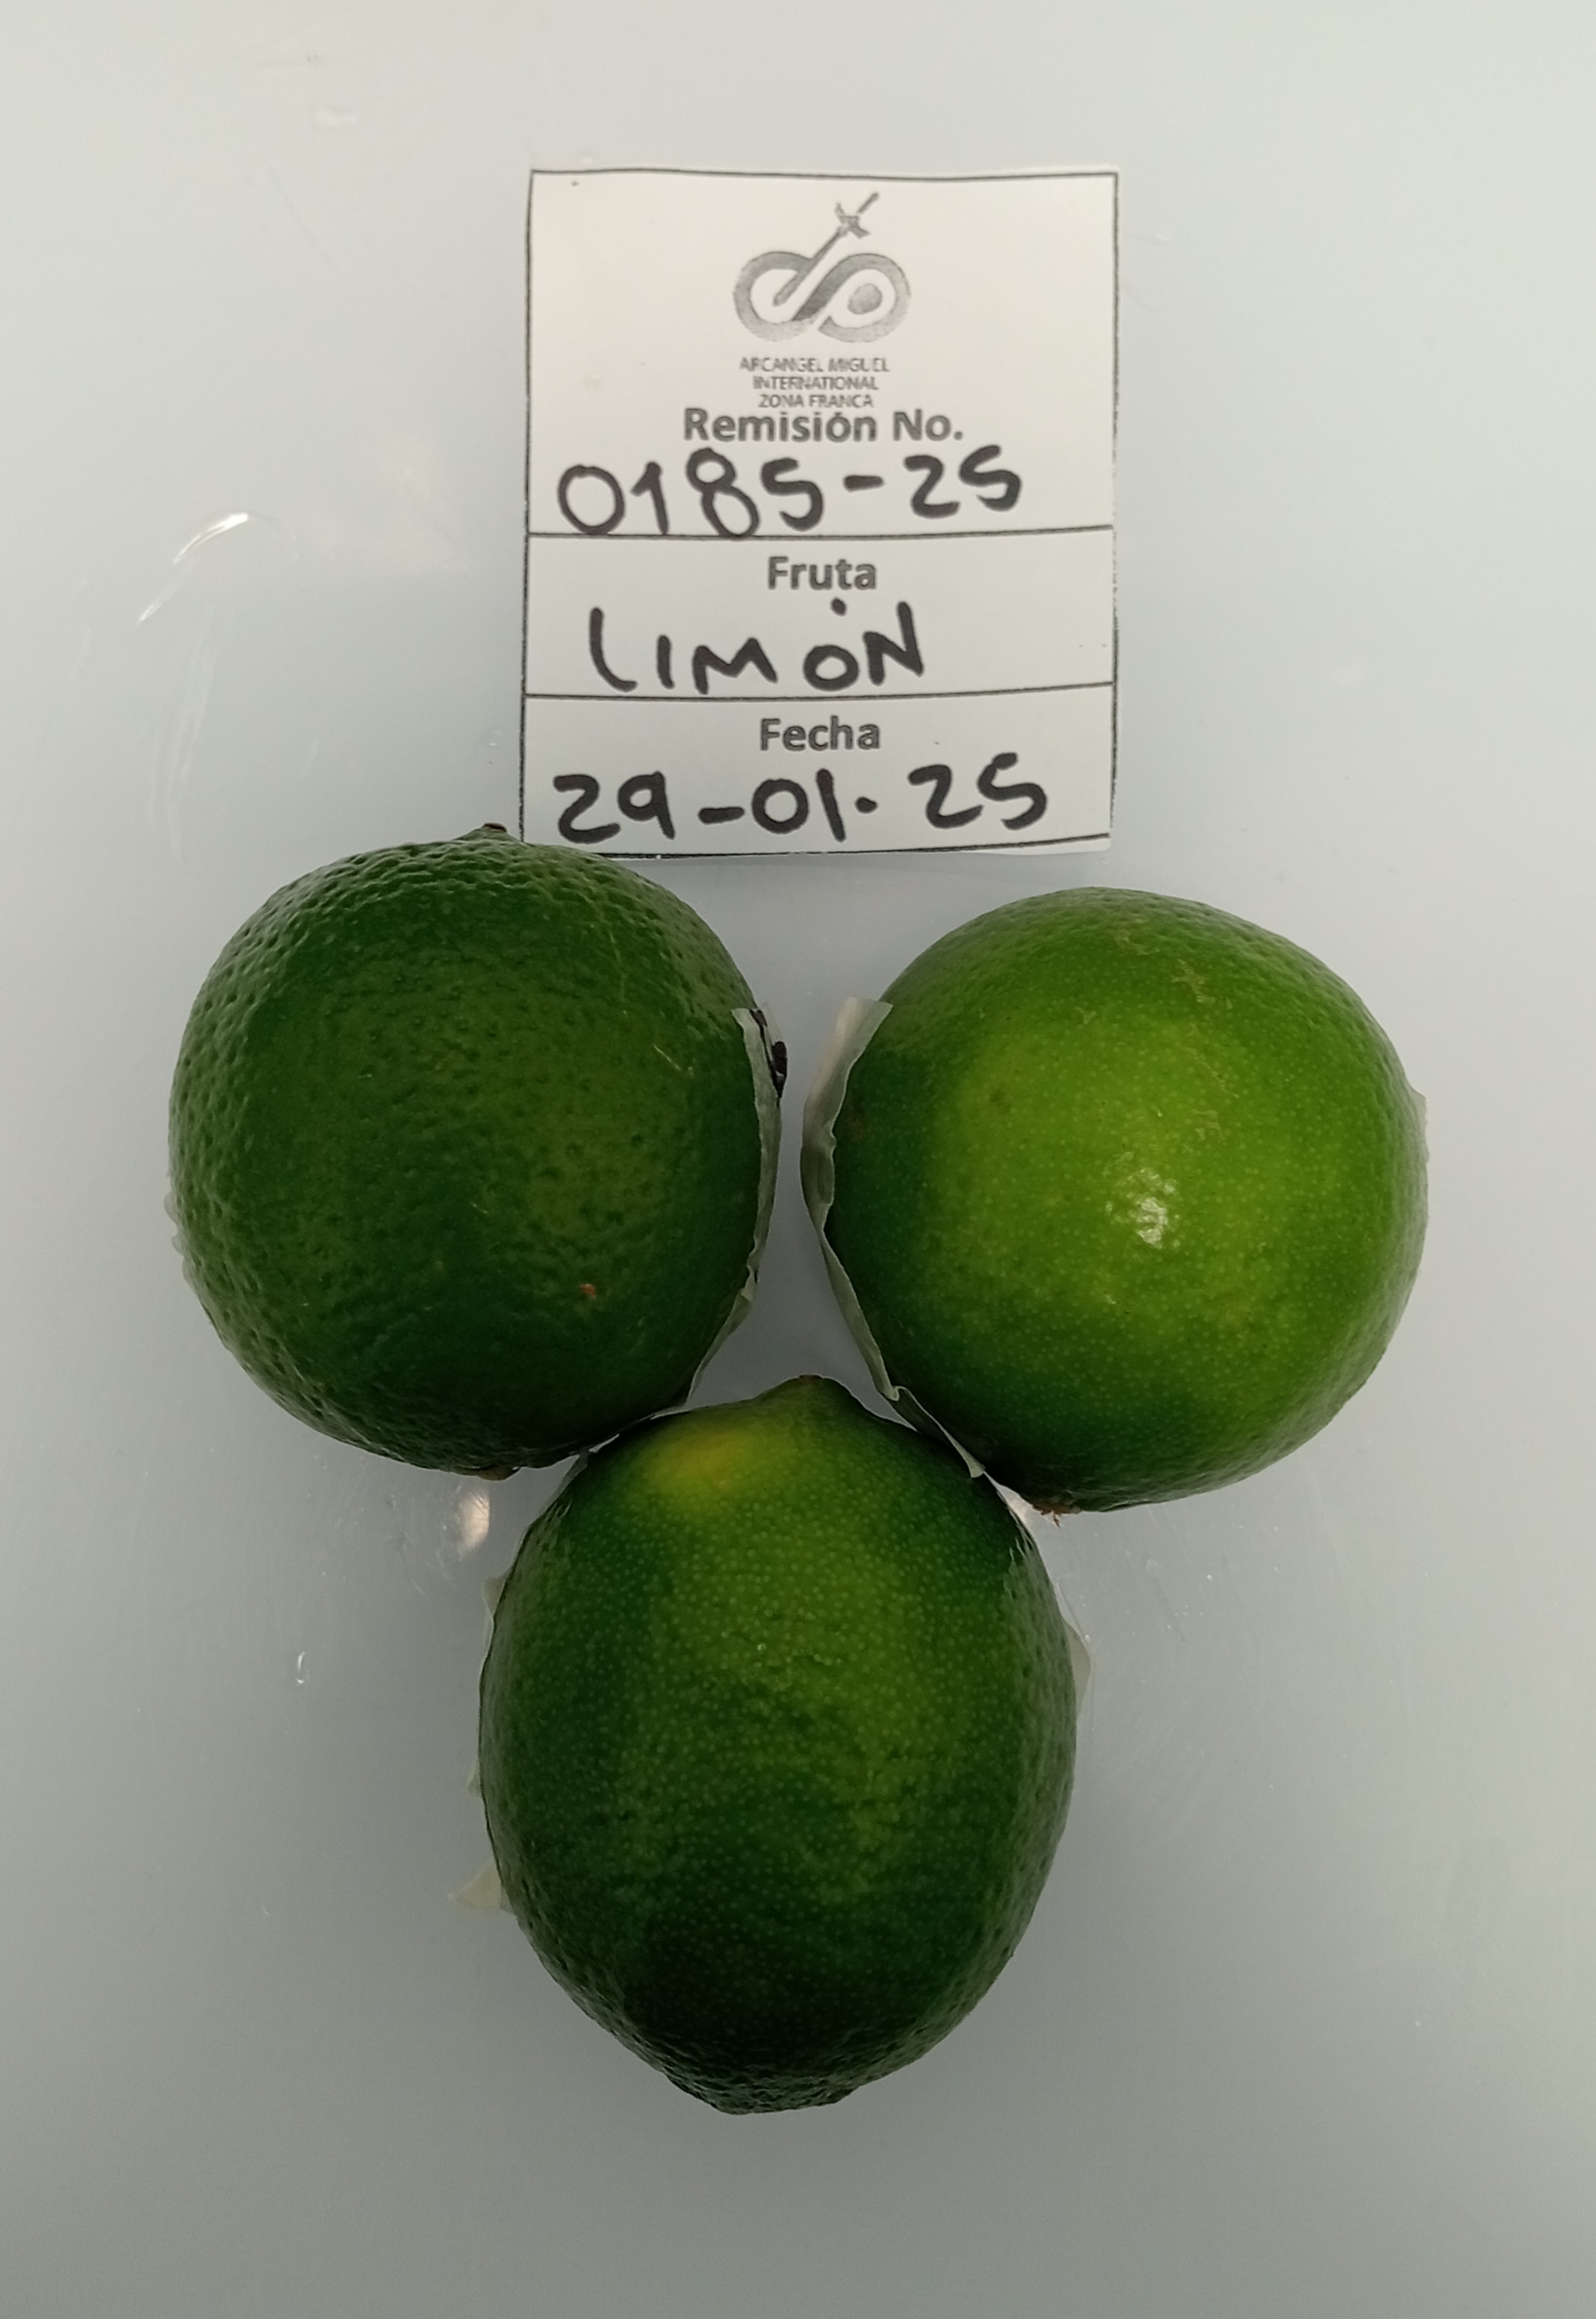 ARCANGEL MIGUEL
INTERNATIONAL
ZONA FRANCA
Remisión No.
0185-25
Fruta
LIMÓN
Fecha
29-01-25